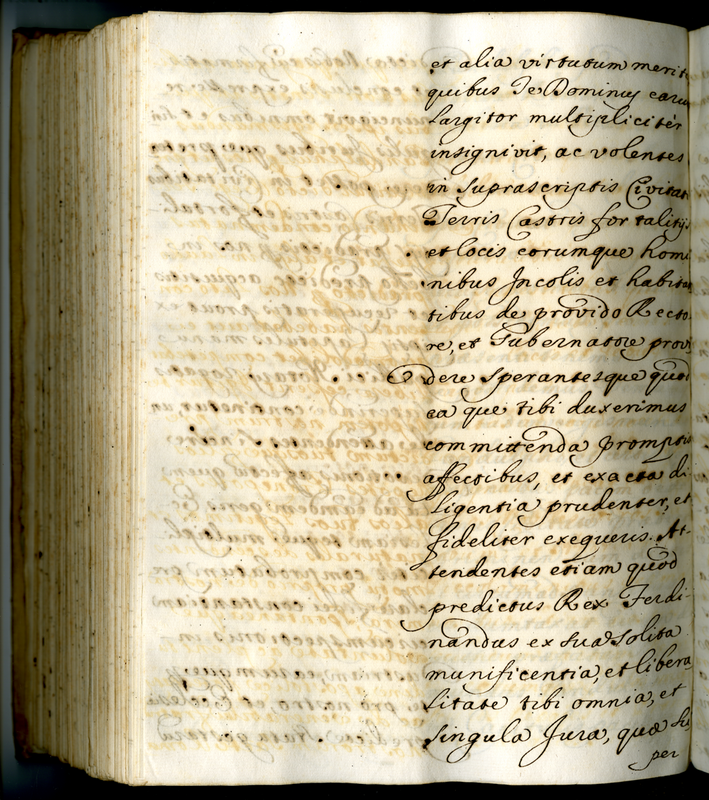 et alia virtutum merit
quibus Te Dominus earu
Largitor multiplicitèr
insignivit, ac volentes
in suprascriptis Civitat
Terris Castris fortalitijs
et locis eorumque homi
nibus Incolis et habitan
tibus de provido Recto
re, et Gubernatore provi
dere sperantesque quod
ea que tibi duxerimus
committenda promptis
affectibus, et exacta di
ligentia prudenter, et
fideliter exequeris. At-
tendentes etiam quod
predictus Rex Ferdi-
nandus ex sua solita
munificentia, et libera
litate tibi omnia, et
singula Jura, quæ su
per